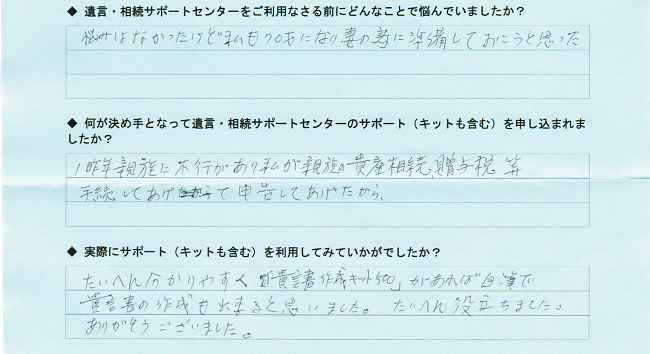 ◆ 遺言・相続サポートセンターをご利用なさる前にどんなことで悩んでいましたか？
悩みはなかったけど私も70才になり妻の為に準備しておこうと思った
◆ 何が決め手となって遺言・相続サポートセンターのサポート（キットも含む）を申し込まれま
したか？
昨年親族に不行があり私が親族の資産相続、贈与税 等
手続してあげて申告してあげたから、
◆ 実際にサポート（キットも含む）を利用してみていかがでしたか？
たいへん分かりやすく「遺言書作成キット500」があれば自筆で
遺言書の作成も出来ると思いました。たいへん役立ちました。
ありがとうございました。